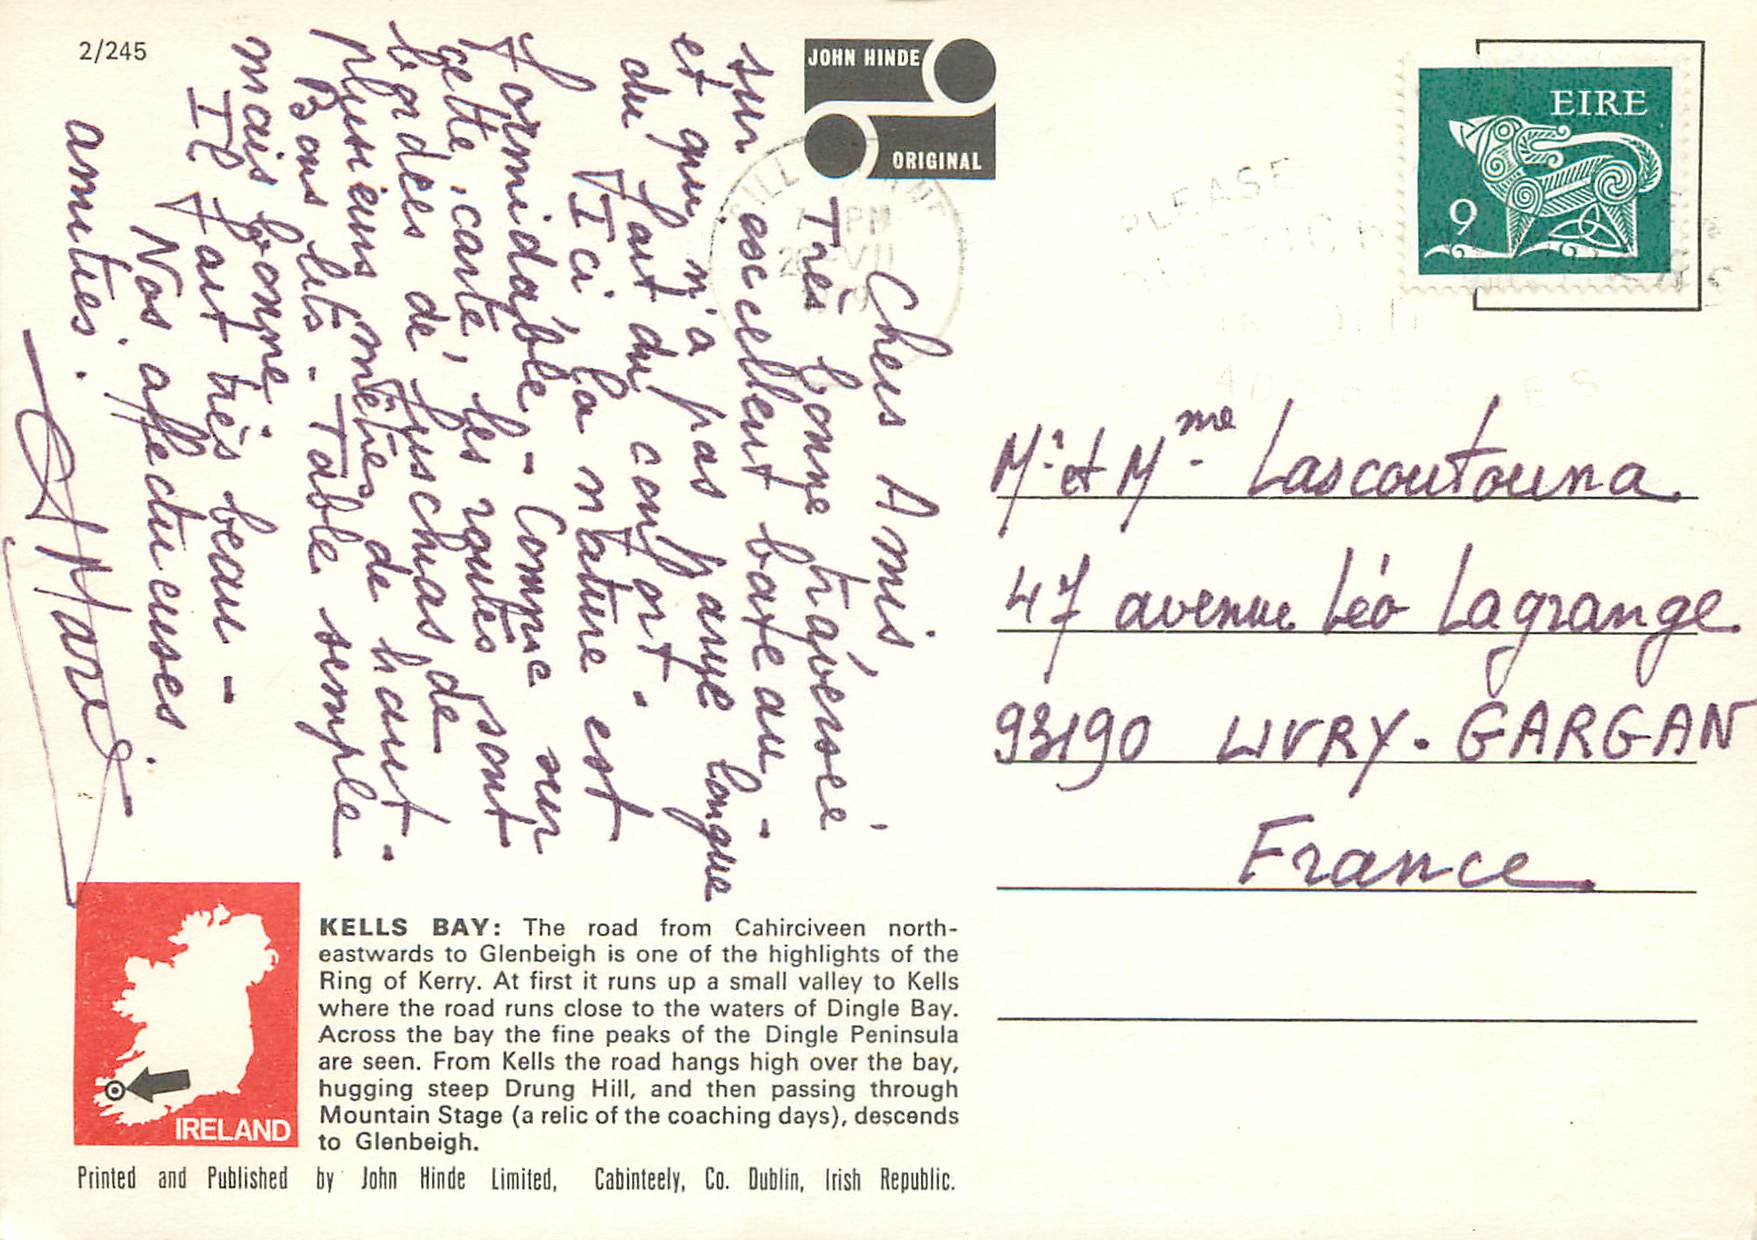 2/245
JOHN HINDE
ORIGINAL
EIRE
9
PLEASE
Chers Amis,
Très bonne traversée
sur excellent bateau -
et qui n'a pas paye longue
du fait du confort -
Ici la nature est
formidable - Comme sur
cette carte, les routes sont
bordées de fuschias de
plusieurs mètres de haut -
Bons lits - Table simple
mais bonne.
Il fait très beau -
Nos affectueuses
amitiés.
Mr et Mme Lascoutouna
47 avenue Léo Lagrange
93190 LIVRY-GARGAN
France
KELLS BAY: The road from Cahirciveen north-
eastwards to Glenbeigh is one of the highlights of the
Ring of Kerry. At first it runs up a small valley to Kells
where the road runs close to the waters of Dingle Bay.
Across the bay the fine peaks of the Dingle Peninsula
are seen. From Kells the road hangs high over the bay,
hugging steep Drung Hill, and then passing through
Mountain Stage (a relic of the coaching days), descends
to Glenbeigh.
IRELAND
Printed and Published by John Hinde Limited, Cabinteely, Co. Dublin, Irish Republic.